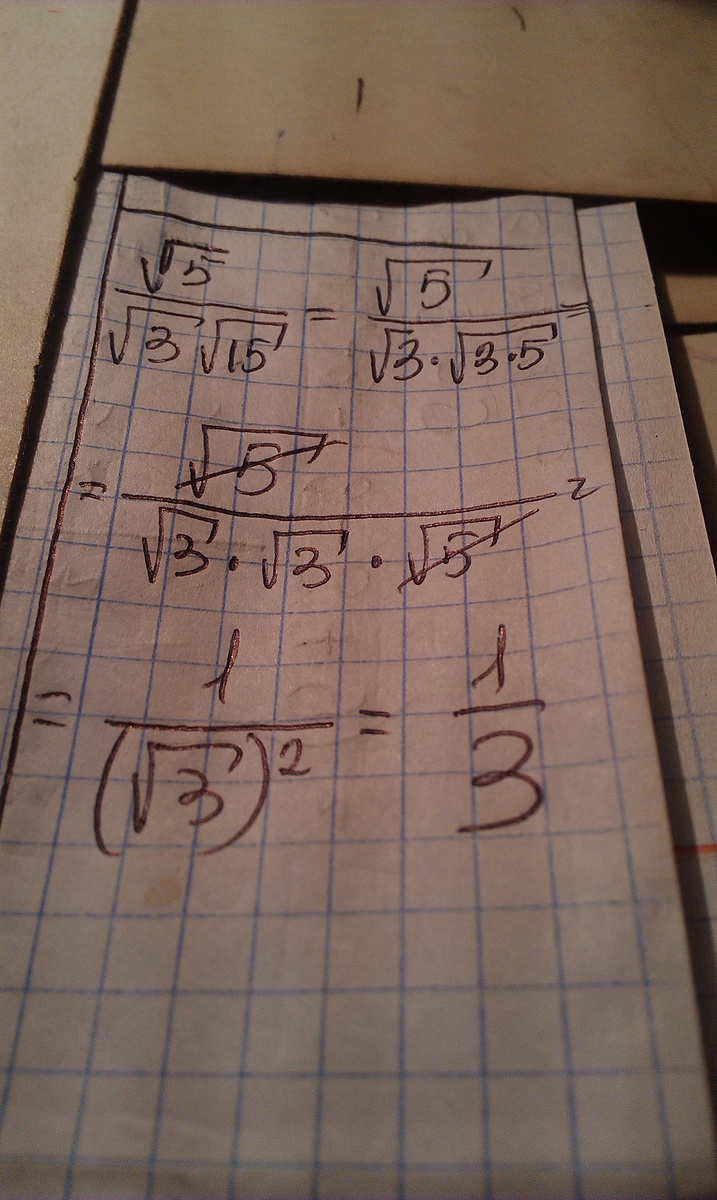 √5 / (√3 √15) = √5 / (√3 · √(3·5)) =
= √5 / (√3 · √3 · √5) =
= 1 / (√3)² = 1/3